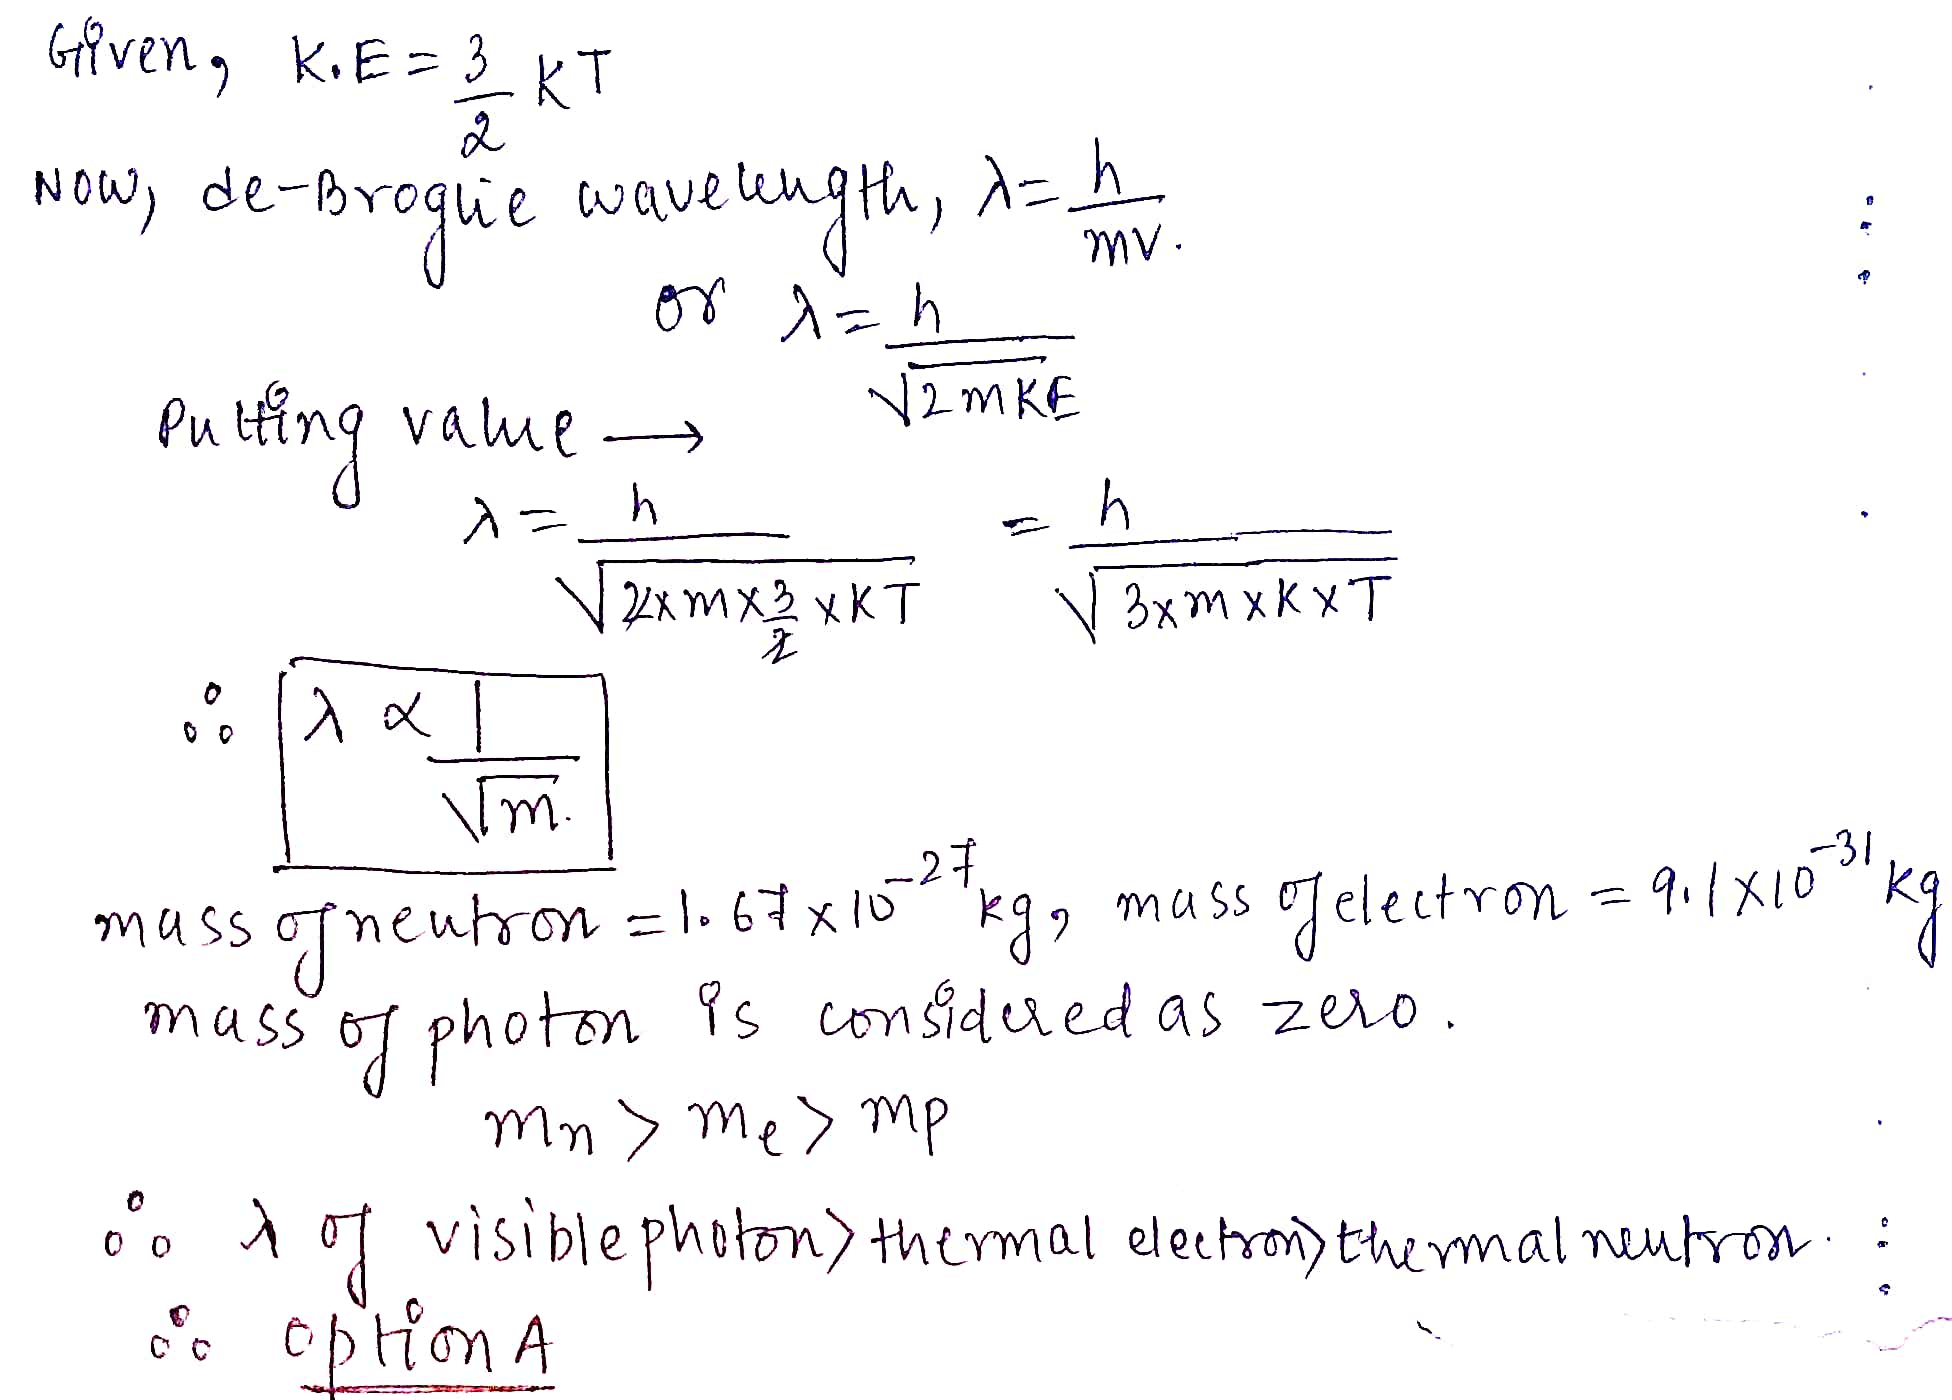 Given, K.E = 3/2 KT
Now, de-Broglie wavelength, λ = h/mv.
or λ = h/√2mKE
Putting value →
λ = h/√2×m×3/2×KT = h/√3×m×K×T
∴ λ ∝ 1/√m.
mass of neutron = 1.67×10⁻²⁷ kg, mass of electron = 9.1×10⁻³¹ kg
mass of photon is considered as zero.
mn > me > mp
∴ λ of visible photon > thermal electron > thermal neutron.
∴ option A